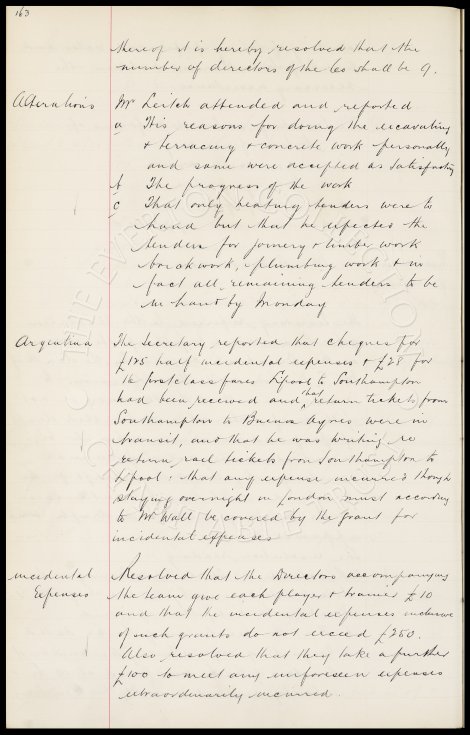 163
thereof it is hereby resolved that the
number of directors of the Co shall be 9.
Alterations
Mr Leitch attended and reported
a His reasons for doing the excavating
& terracing & concrete work personally
and same were accepted as satisfactory
b The progress of the work
c That only heating tenders were to
hand but that he expected the
tenders for joinery & timber work
brickwork, plumbing work & in
fact all remaining tenders to be
in hand by Monday
Argentina
The Secretary reported that cheques for
£125 half incidental expenses & £28 for
16 first class fares L'pool to Southampton
had been received and that return tickets from
Southampton to Buenos Ayres were in
transit, and that he was writing re
return rail tickets from Southampton to
L'pool: that any expense incurred though
staying overnight in London must according
to Mr Wall be covered by the grant for
incidental expenses
Incidental
Expenses
Resolved that the Directors accompanying
the team give each player & trainer £10
and that the incidental expenses inclusive
of such grants do not exceed £250.
Also resolved that they take a further
£100 to meet any unforeseen expenses
extraordinarily incurred.